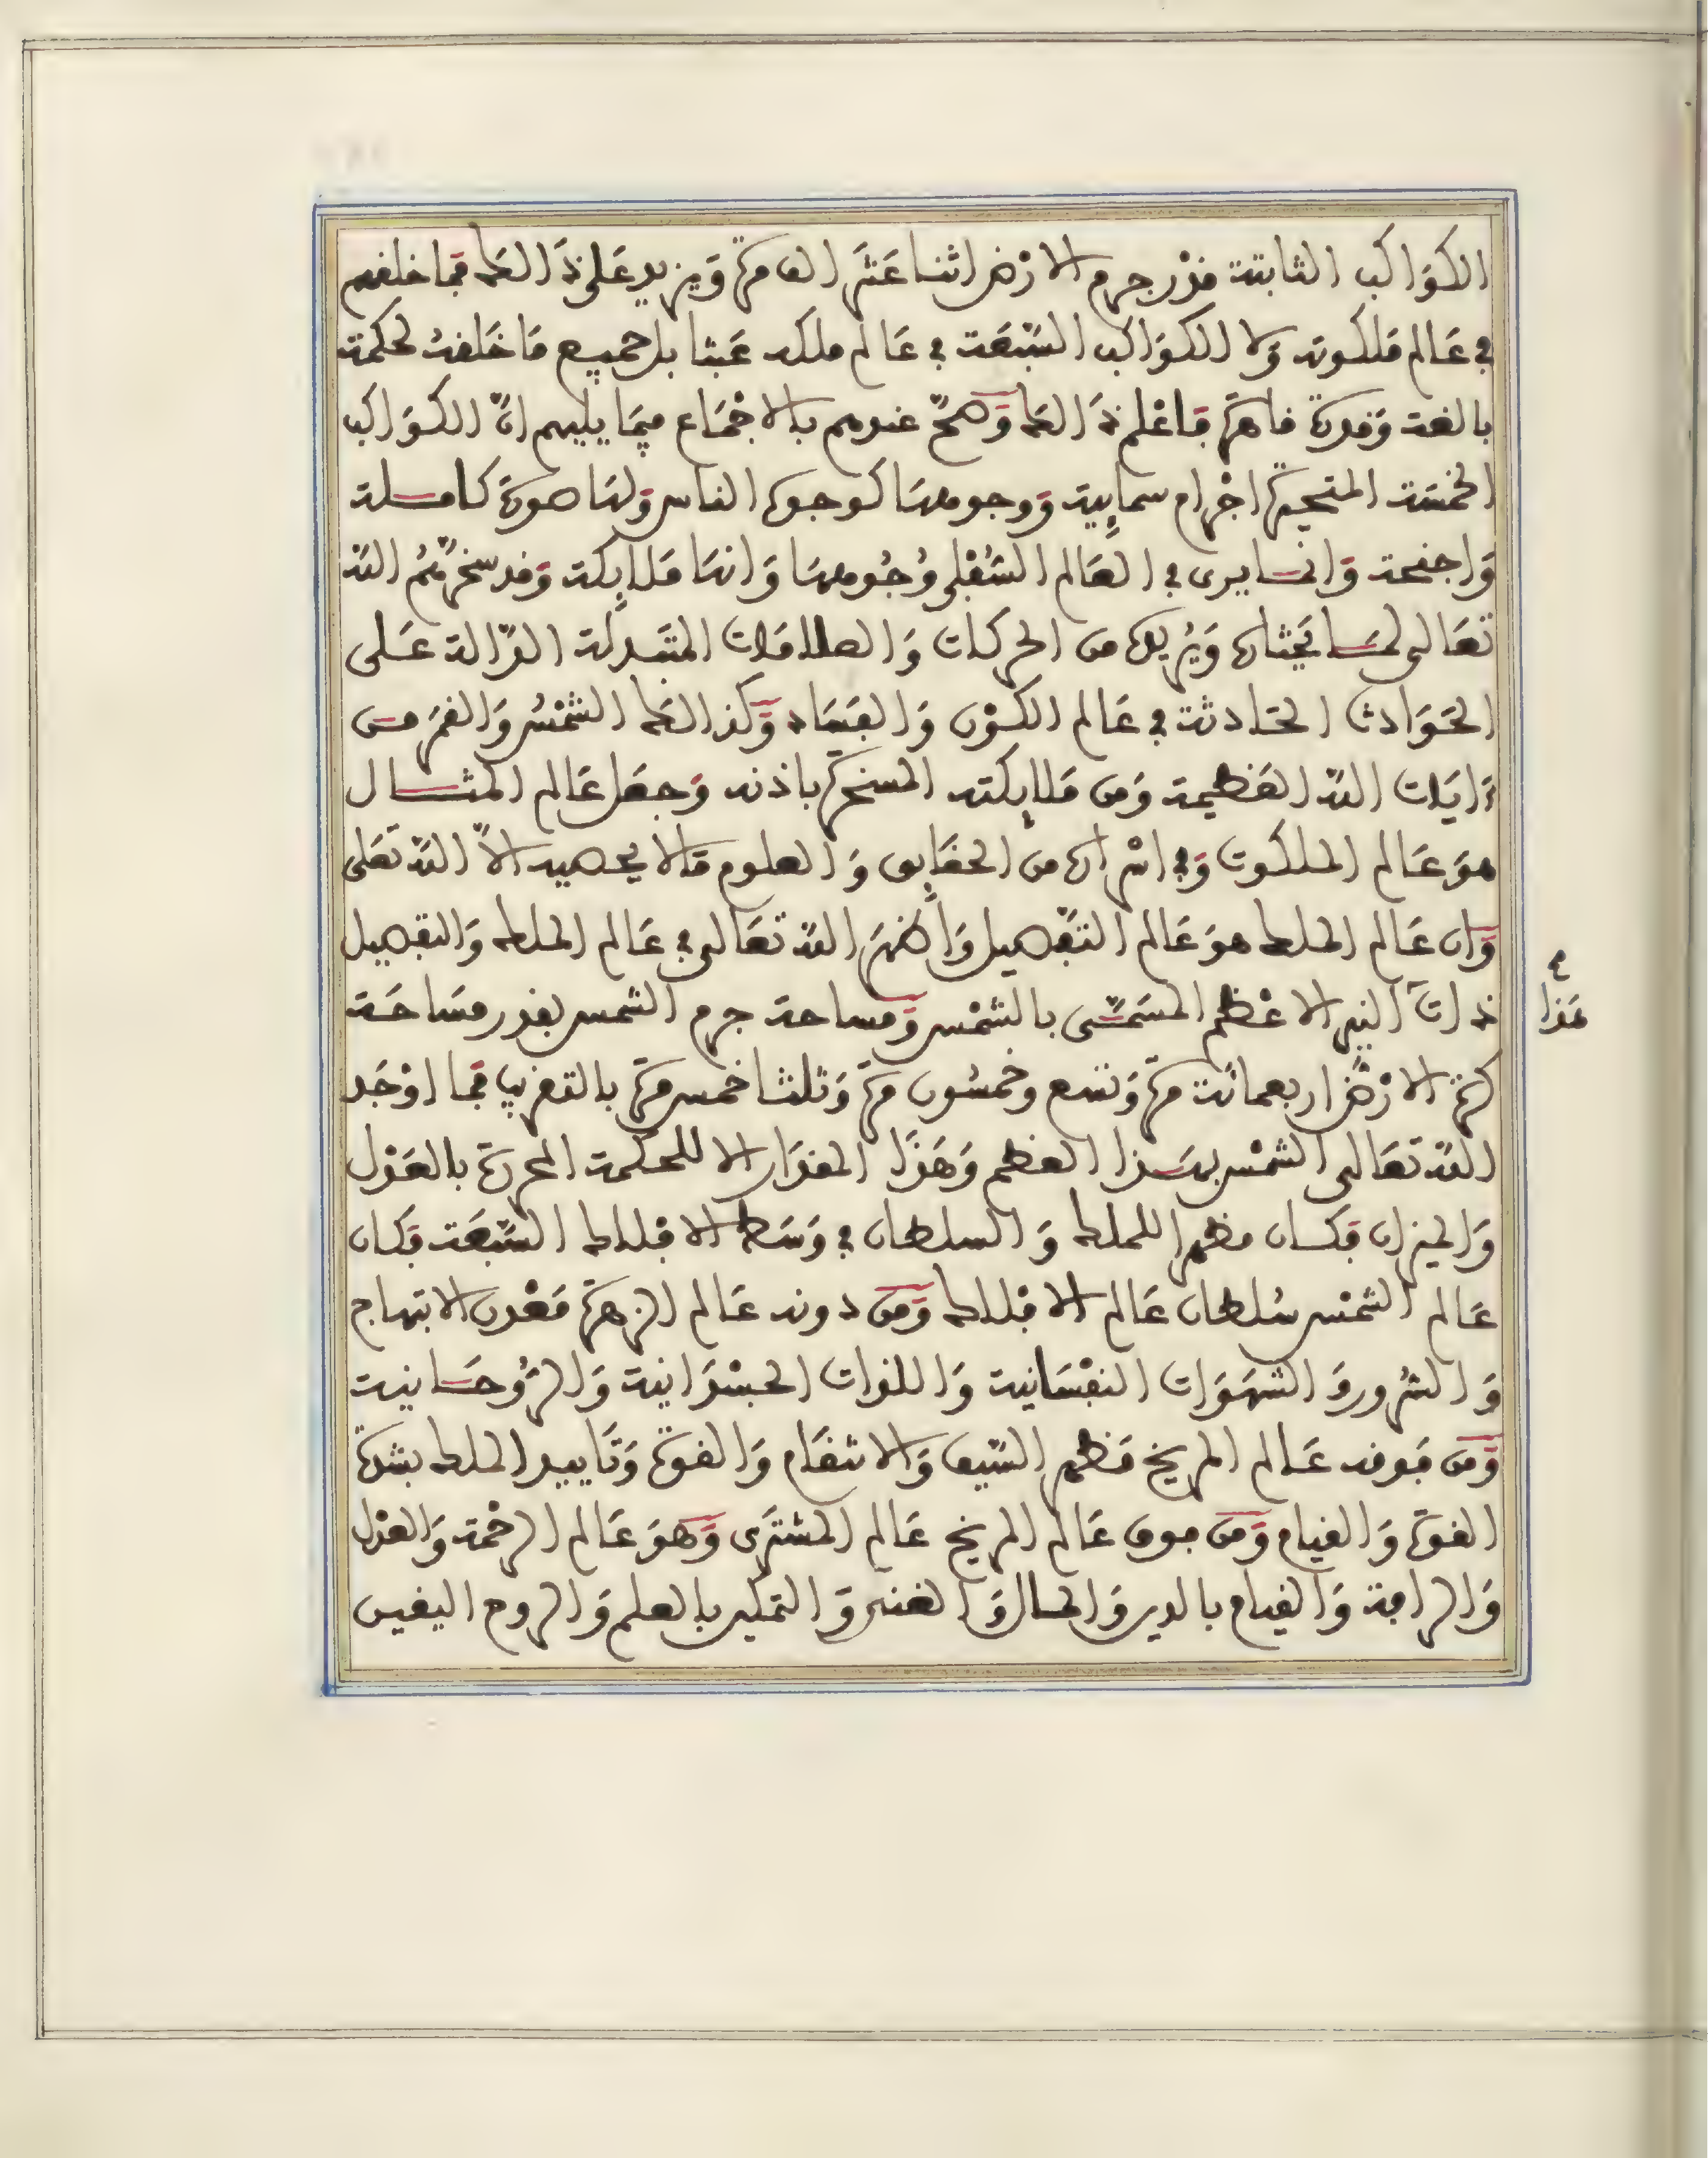 الكَوَاكب الثابتة قدْر جرم الارْض اثنا عَشَر الف مرّة وَيزيد عَلى ذَالك فما خلقهم
في عَالم مَلكوته وَلا الكوَاكب السَّبْعَة في عَالم ملكه عَبثا بل جميع مَا خَلقهُ لحكمة
بالغة وَقدرة قاهرَة فاعْلم ذَالك وَصحّ عندهم بالاجْمَاع فيمَا يليهم انّ الكوَاكب
الخمْسَة المتحيّرة اجْرام سمايية وَوجوهها كوجوه الناس وَلهَا صورَة كاملة
وَاجنحة وَانما يرى في العَالم السُّفْلي وُجُوههَا وَانهَا مَلايكة وَقد سخّرهُمُ اللّه
تعَالى لمَا يحْتاره وَيُريده من الحركات وَالعلامَات المتَبدلة الدّالة عَلى
الحَوَادث الحَادثة في عَالم الكوْن وَالفسَاد وَكذالكَ الشمْسُ وَالقمَر من
ءَايَات اللّه العَظيمة وَمن مَلايكته المسخرَة باذنه وَجعَل عَالم المثال
هوَ عَالم الملكوت وَفي اسْراره من الحقَايق وَالعلوم مَا لا يحصيه الاّ اللّه تعَلى
وَان عَالم الملك هوَ عَالم التَّفصيل وَأظهَرَ اللّه تعَالى في عَالم الملك وَالتفصيل
ذات النير الاعْظم المسَمَّى بالشمْس وَمساحة جرم الشمس بقدر مسَاحَة
كرَة الارْض اربعمائة مرّة وَتسع وخمسُون مرّة وَثلثا خمس مرّة بالتقريب فما اوْجَد
اللّه تعَالى الشمْس بهَذا العظم وَهَذَا المقدَار الا للحكمة المحررة بالعَدْل
وَالميزان فكان مظهرا للملك وَالسلطان في وَسَط الافلاك السّبْعَة فكان
عَالم الشمْس سُلطان عَالم الافْلاك وَمن دونه عَالم الزهرَة مَعْدن الابتهاج
وَالسُّرور وَالشهَوَات النفْسَانية وَاللذات الجسْدَانية وَالرُّوحَانية
وَمن فوقه عَالم المريخ مَظهر السَّيف وَالانتقَام وَالقوّة وَتَاييد الملك بشدّة
القوّة وَالقيام وَمن فوق عَالم المريخ عَالم المشتَرى وَهوَ عَالم الرحْمة وَالعدْل
وَالرافة وَالقيام بالدين وَالمال وَالغنى وَالتمكين بالعلم وَالروح اليقين
هَذا